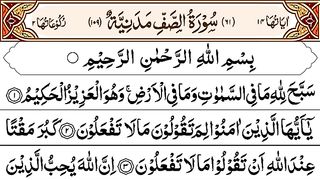 اٰیَاتُهَا ۱۴ (۶۱) سُوْرَةُ الصَّفِّ مَدَنِيَّةٌ (۱۰۹) رُكُوْعَاتُهَا ۲
بِسْمِ اللهِ الرَّحْمٰنِ الرَّحِيْمِ
سَبَّحَ لِلّٰهِ مَا فِی السَّمٰوٰتِ وَمَا فِی الْاَرْضِ ۚ وَهُوَ الْعَزِيْزُ الْحَكِيْمُ ۝۱
يٰۤاَيُّهَا الَّذِيْنَ اٰمَنُوْا لِمَ تَقُوْلُوْنَ مَا لَا تَفْعَلُوْنَ ۝۲ كَبُرَ مَقْتًا
عِنْدَ اللهِ اَنْ تَقُوْلُوْا مَا لَا تَفْعَلُوْنَ ۝۳ اِنَّ اللهَ يُحِبُّ الَّذِيْنَ